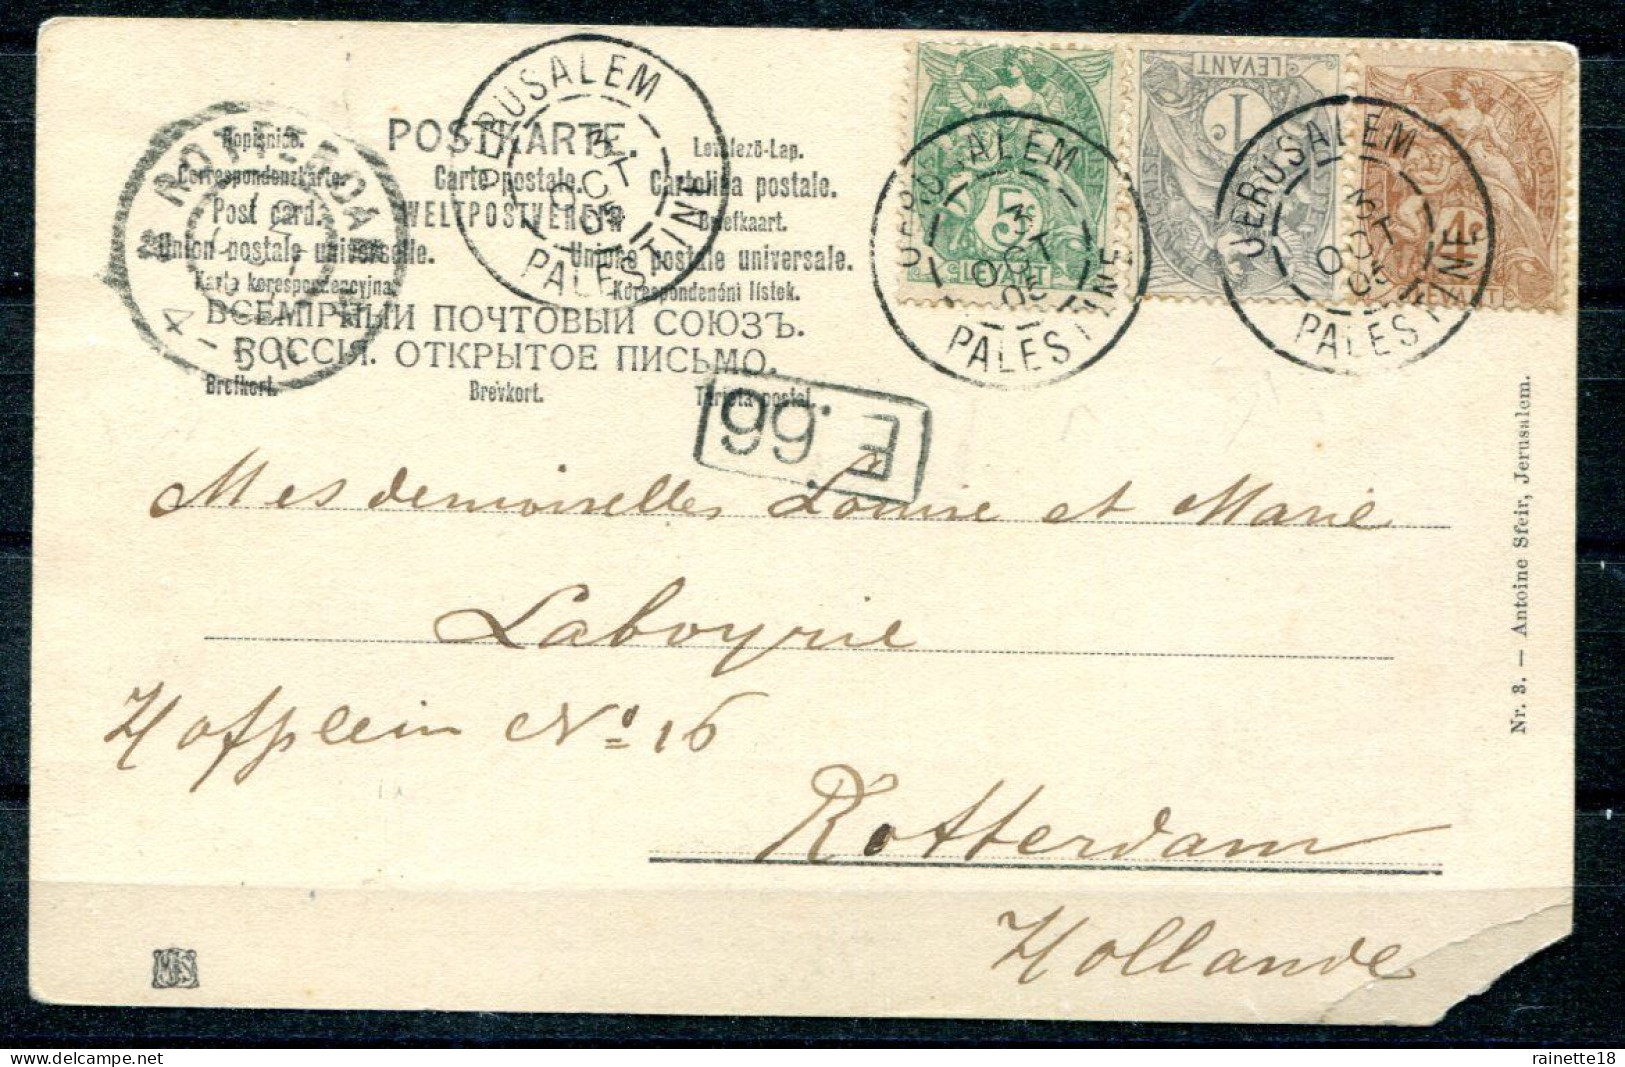 POSTKARTE.
Dopisnice. Levelező-Lap.
Correspondenzkarte. Carte postale. Cartolina postale.
Post card. WELTPOSTVEREIN Briefkaart.
Union postale universelle. Unione postale universale.
Karta korespondencyjna. Korespondenóni listek.
ВСЕМІРНЫЙ ПОЧТОВЫЙ СОЮЗЪ.
РОССІЯ. ОТКРЫТОЕ ПИСЬМО.
Brefkort. Brevkort. Tarjeta postal.
JERUSALEM
3
OCT
05
PALESTINE
JERUSALEM
3
OCT
05
PALESTINE
JERUSALEM
3
OCT
05
PALESTINE
5
LEVANT
LEVANTE
1
FRANÇAISE
4
LEVANT
E. 66
Mesdemoiselles Louise et Marie
Laboyrie
Hofplein No 16
Rotterdam
Hollande
Nr. 3. — Antoine Sfeir, Jerusalem.
rainette18